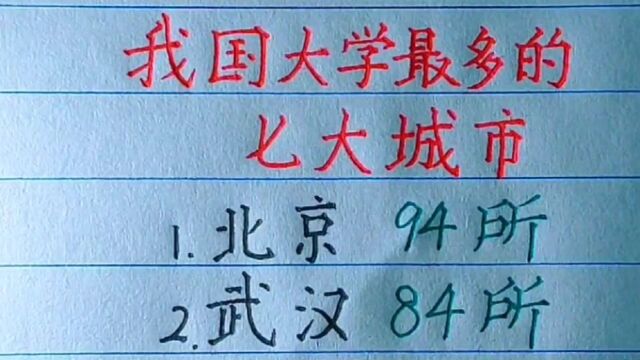 我国大学最多的
七大城市
1.北京 94所
2.武汉 84所